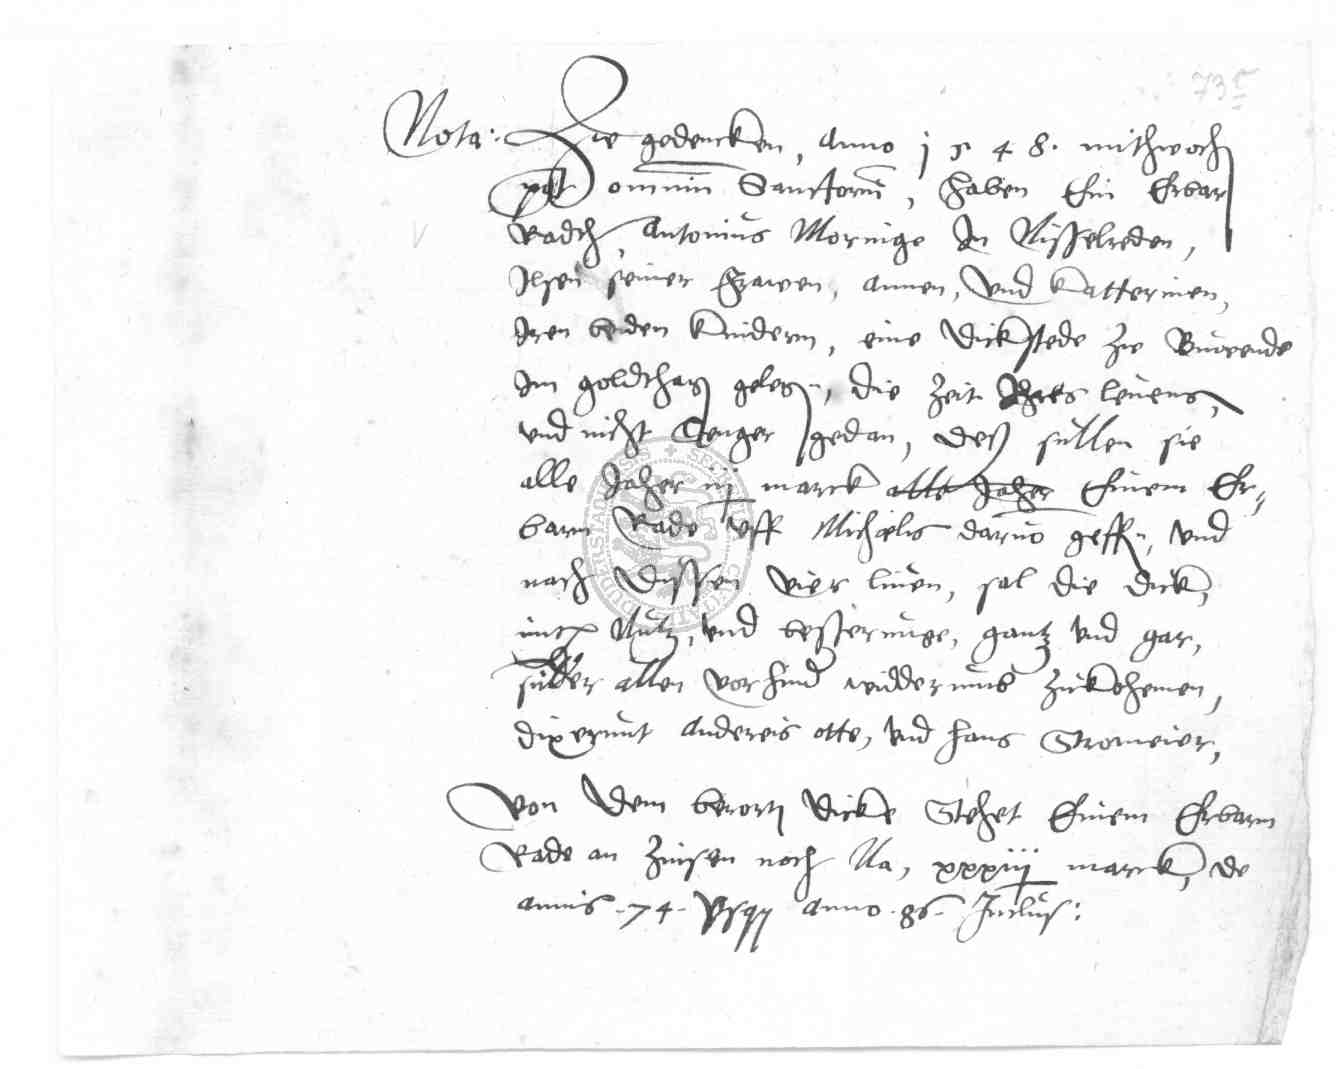 73
Nota: Zw gedencken, Anno 1548. mithwoch
post omnium Sanctorum, Haben Ein Erbar
Radth, Antonius Moringe In Nisselreden,
Ilsen seiner frawen, Annen, vnd Katterinen,
Iren beiden kindern, eine Dickstede zw Bunende
Im goldthag gelegen, die zeit Ihres leuens,
vnd nicht lenger gedan, des sullen sie
alle Jaher iij marck alle Jaher Einem Er-
barn Rade vff Michelis daruon geffen, vnd
nach dissen vier liuen, sal die dick,
mith Nutz, vnd besseringe, gantz vnd gar,
allen vor sind widderumb zukohemen,
dixerunt Andereis otte, vnd Hans Stromeier,
Von dem berorten dicke Stehet Einem Erbarn
Rade an Zinsen noch Na, xxxiij marck, de
annis .74. vsque Anno .86. Inclus: